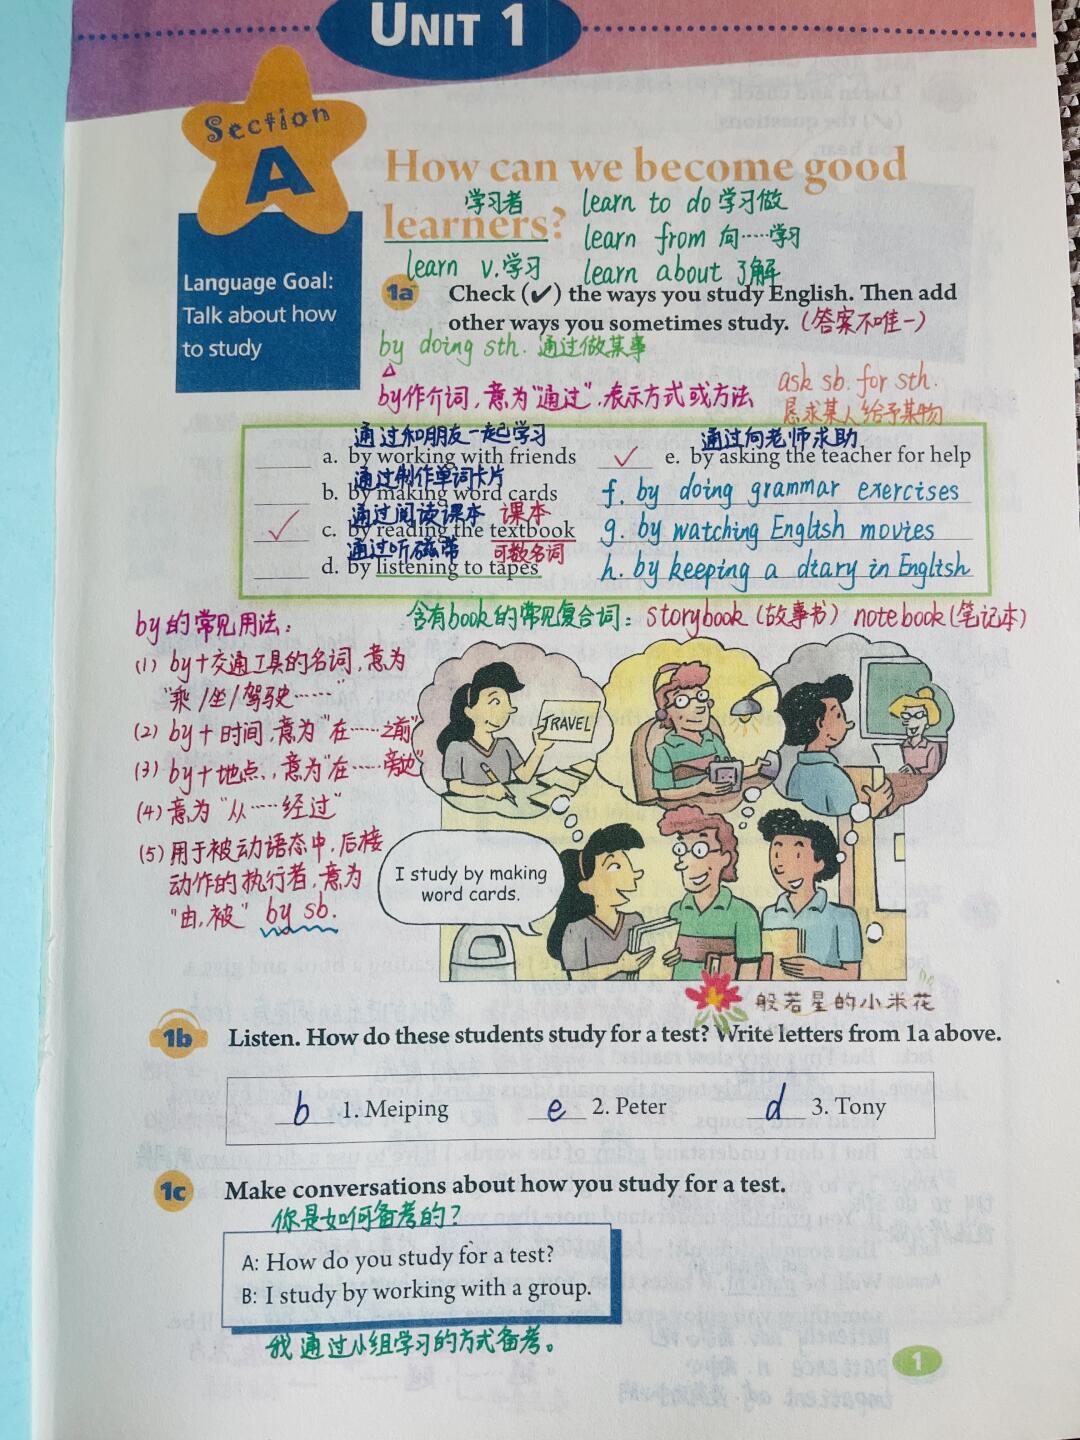 UNIT 1
Section
A
How can we become good
学习者 learn to do 学习做
learners?
learn from 向……学习
learn v.学习 learn about 了解
Language Goal:
Talk about how
to study
1a Check (✔) the ways you study English. Then add
other ways you sometimes study. (答案不唯一)
by doing sth. 通过做某事
by作介词,意为"通过",表示方式或方法
ask sb. for sth.
恳求某人给予某物
通过和朋友一起学习
a. by working with friends
通过制作单词卡片
b. by making word cards
通过阅读课本 课本
✓ c. by reading the textbook
通过听磁带 可数名词
d. by listening to tapes
通过向老师求助
✓ e. by asking the teacher for help
f. by doing grammar exercises
g. by watching English movies
h. by keeping a diary in English
含有book的常见复合词: storybook (故事书) notebook (笔记本)
by的常见用法:
(1) by+交通工具的名词,意为
"乘/坐/驾驶……"
(2) by+时间,意为"在……之前"
(3) by+地点,意为"在……旁边"
(4) 意为"从……经过"
(5) 用于被动语态中,后接
动作的执行者,意为
"由,被" by sb.
TRAVEL
I study by making
word cards.
般若星的小米花
1b Listen. How do these students study for a test? Write letters from 1a above.
b 1. Meiping e 2. Peter d 3. Tony
1c Make conversations about how you study for a test.
你是如何备考的?
A: How do you study for a test?
B: I study by working with a group.
我通过小组学习的方式备考。
1